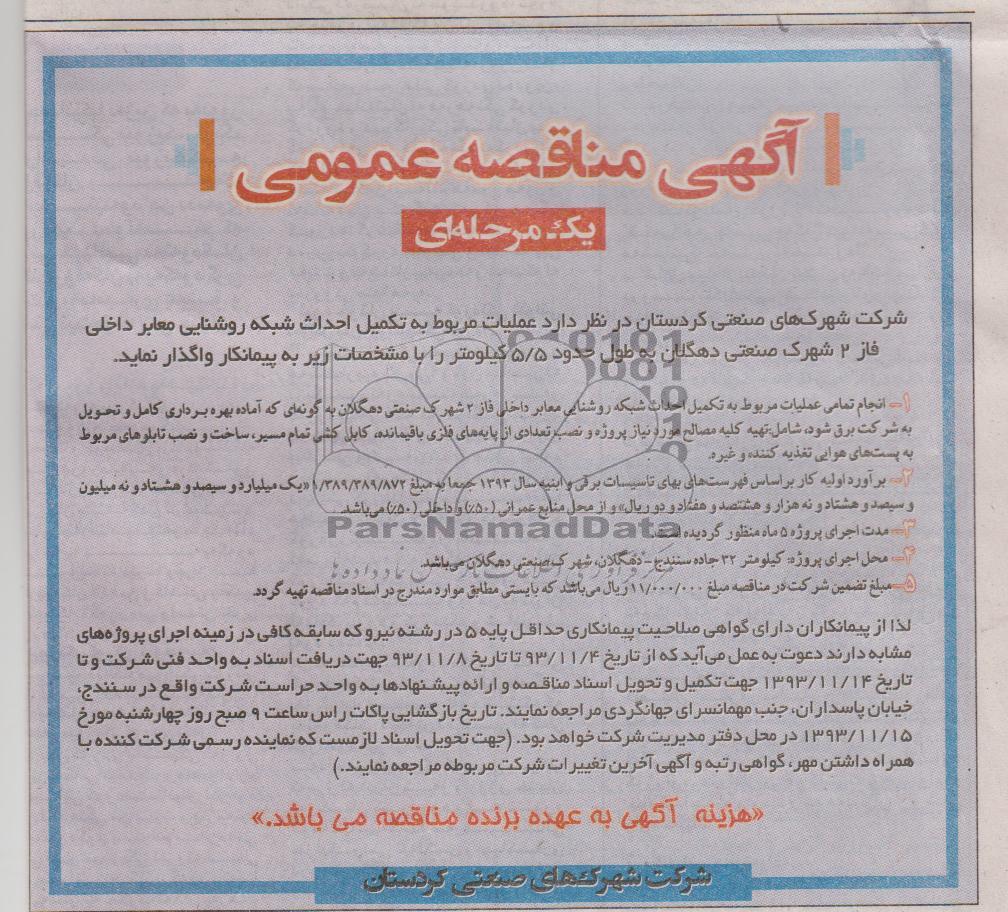 آگهی مناقصه عمومی
یک مرحله‌ای
شرکت شهرک‌های صنعتی کردستان در نظر دارد عملیات مربوط به تکمیل احداث شبکه روشنایی معابر داخلی
فاز ۲ شهرک صنعتی دهگلان به طول حدود ۵/۵ کیلومتر را با مشخصات زیر به پیمانکار واگذار نماید.
۱- انجام تمامی عملیات مربوط به تکمیل احداث شبکه روشنایی معابر داخلی فاز ۲ شهرک صنعتی دهگلان به گونه‌ای که آماده بهره برداری کامل و تحویل
به شرکت برق شود، شامل: تهیه کلیه مصالح مورد نیاز پروژه و نصب تعدادی از پایه‌های فلزی باقیمانده، کابل کشی تمام مسیر، ساخت و نصب تابلوهای مربوط
به پست‌های هوایی تغذیه کننده و غیره.
۲- برآورد اولیه کار براساس فهرست‌های بهای تاسیسات برقی و ابنیه سال ۱۳۹۳ جمعا به مبلغ ۱/۳۸۹/۳۸۹/۸۷۲ «یک میلیارد و سیصد و هشتاد و نه میلیون
و سیصد و هشتاد و نه هزار و هشتصد و هفتاد و دو ریال» و از محل منابع عمرانی (۵۰٪) و داخلی (۵۰٪) می‌باشد.
ParsNamadData
۳- مدت اجرای پروژه ۵ ماه منظور گردیده است.
۴- محل اجرای پروژه: کیلومتر ۳۲ جاده سنندج - دهگلان، شهرک صنعتی دهگلان می‌باشد.
۵- مبلغ تضمین شرکت در مناقصه مبلغ ۱۱/۰۰۰/۰۰۰ ریال می‌باشد که بایستی مطابق موارد مندرج در اسناد مناقصه تهیه گردد.
لذا از پیمانکاران دارای گواهی صلاحیت پیمانکاری حداقل پایه ۵ در رشته نیرو که سابقه کافی در زمینه اجرای پروژه‌های
مشابه دارند دعوت به عمل می‌آید که از تاریخ ۹۳/۱۱/۴ تا تاریخ ۹۳/۱۱/۸ جهت دریافت اسناد به واحد فنی شرکت و تا
تاریخ ۱۳۹۳/۱۱/۱۴ جهت تکمیل و تحویل اسناد مناقصه و ارائه پیشنهادها به واحد حراست شرکت واقع در سنندج،
خیابان پاسداران، جنب مهمانسرای جهانگردی مراجعه نمایند. تاریخ بازگشایی پاکات راس ساعت ۹ صبح روز چهارشنبه مورخ
۱۳۹۳/۱۱/۱۵ در محل دفتر مدیریت شرکت خواهد بود. (جهت تحویل اسناد لازمست که نماینده رسمی شرکت کننده با
همراه داشتن مهر، گواهی رتبه و آگهی آخرین تغییرات شرکت مربوطه مراجعه نمایند.)
«هزینه آگهی به عهده برنده مناقصه می باشد.»
شرکت شهرک‌های صنعتی کردستان